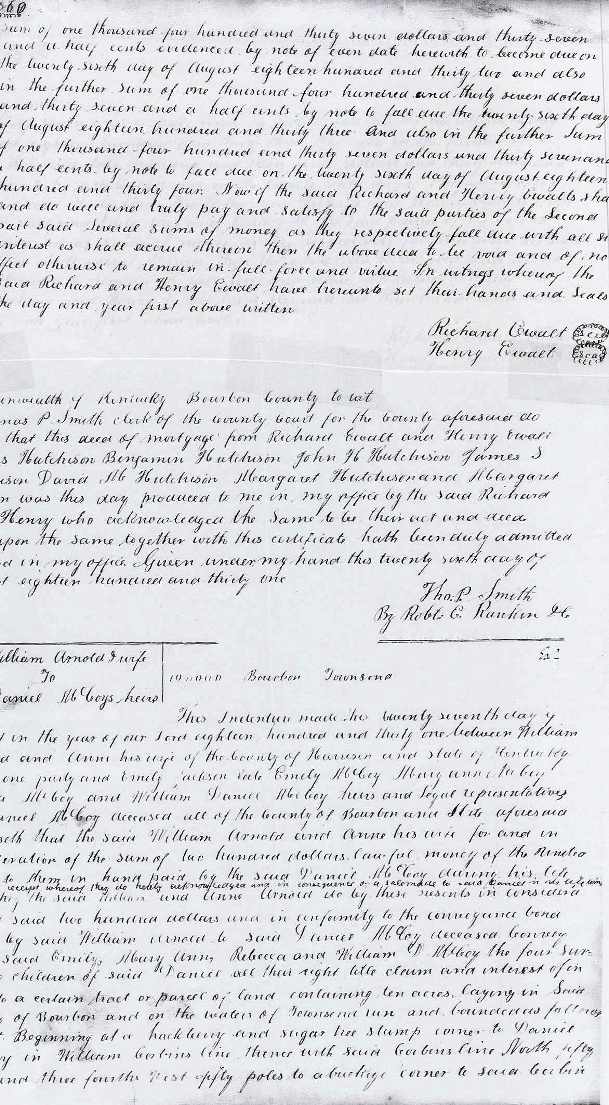 360
sum of one thousand four hundred and thirty seven dollars and thirty seven
and a half cents evidenced by note of even date herewith to become due on
the twenty sixth day of August eighteen hundred and thirty two and also
in the further sum of one thousand four hundred and thirty seven dollars
and thirty seven and a half cents by note to fall due the twenty sixth day
of August eighteen hundred and thirty three and also in the further Sum
of one thousand four hundred and thirty seven dollars and thirty seven and
a half cents by note to fall due on the twenty sixth day of August eighteen
hundred and thirty four. Now if the said Richard and Henry Ewalts sha
and do well and truly pay and satisfy to the said parties of the Second
part said several sums of money as they respectively fall due with all
interest as shall accrue thereon then the above deed to be void and of no
effect otherwise to remain in full force and virtue In witness whereof the
said Richard and Henry Ewalt have hereunto set their hands and Seals
the day and year first above written
Richard Ewalt Seal
Henry Ewalt Seal
onwealth of Kentucky Bourbon County to wit
mas P. Smith clerk of the county court for the county aforesaid do
that this deed of mortgage from Richard Ewalt and Henry Ewalt
s Hutchison Benjamin Hutchison John H Hutchison James S
ison David Mc Hutchison Margaret Hutchison and Margaret
n was this day produced to me in my office by the said Richard
Henry who acknowledged the same to be their act and deed
upon the same together with this certificate hath been duly admitted
d in my office Given under my hand this twenty sixth day of
st eighteen hundred and thirty one
Tho. P. Smith
By Robt. C. Rankin dc
William Arnold & wife
To Bourbon Townsend
Daniel McCoys heirs
This Indenture made the twenty seventh day of
t in the year of our Lord eighteen hundred and thirty one between William
d and Ann his wife of the County of Harrison and state of Kentucky
one party and Emily Jackson late Emily McCoy Mary Ann McCoy
a McCoy and William Daniel McCoy heirs and legal representatives
aniel McCoy deceased all of the County of Bourbon and State aforesaid
seth that the said William Arnold and Anne his wife for and in
eration of the sum of two hundred dollars lawful money of the
to them in hand paid by the said Daniel McCoy during his life
receipt whereof they do hereby acknowledged and in consequence of a
the said William and Anne Arnold do by these presents in considera
said two hundred dollars and in conformity to the conveyance bond
by said William Arnold to said Daniel McCoy deceased convey
said Emily, Mary Ann, Rebecca and William D. McCoy the four sur-
children of said Daniel all their right title claim and interest of in
to a certain tract or parcel of land containing ten acres, laying in said
of Bourbon and on the waters of Townsend run and bounded as follows
Beginning at a hackberry and sugar tree stump corner to Daniel
oy in William Corbins line thence with said Corbins line North fifty
and three fourths West fifty poles to a buckeye corner to said Corbin